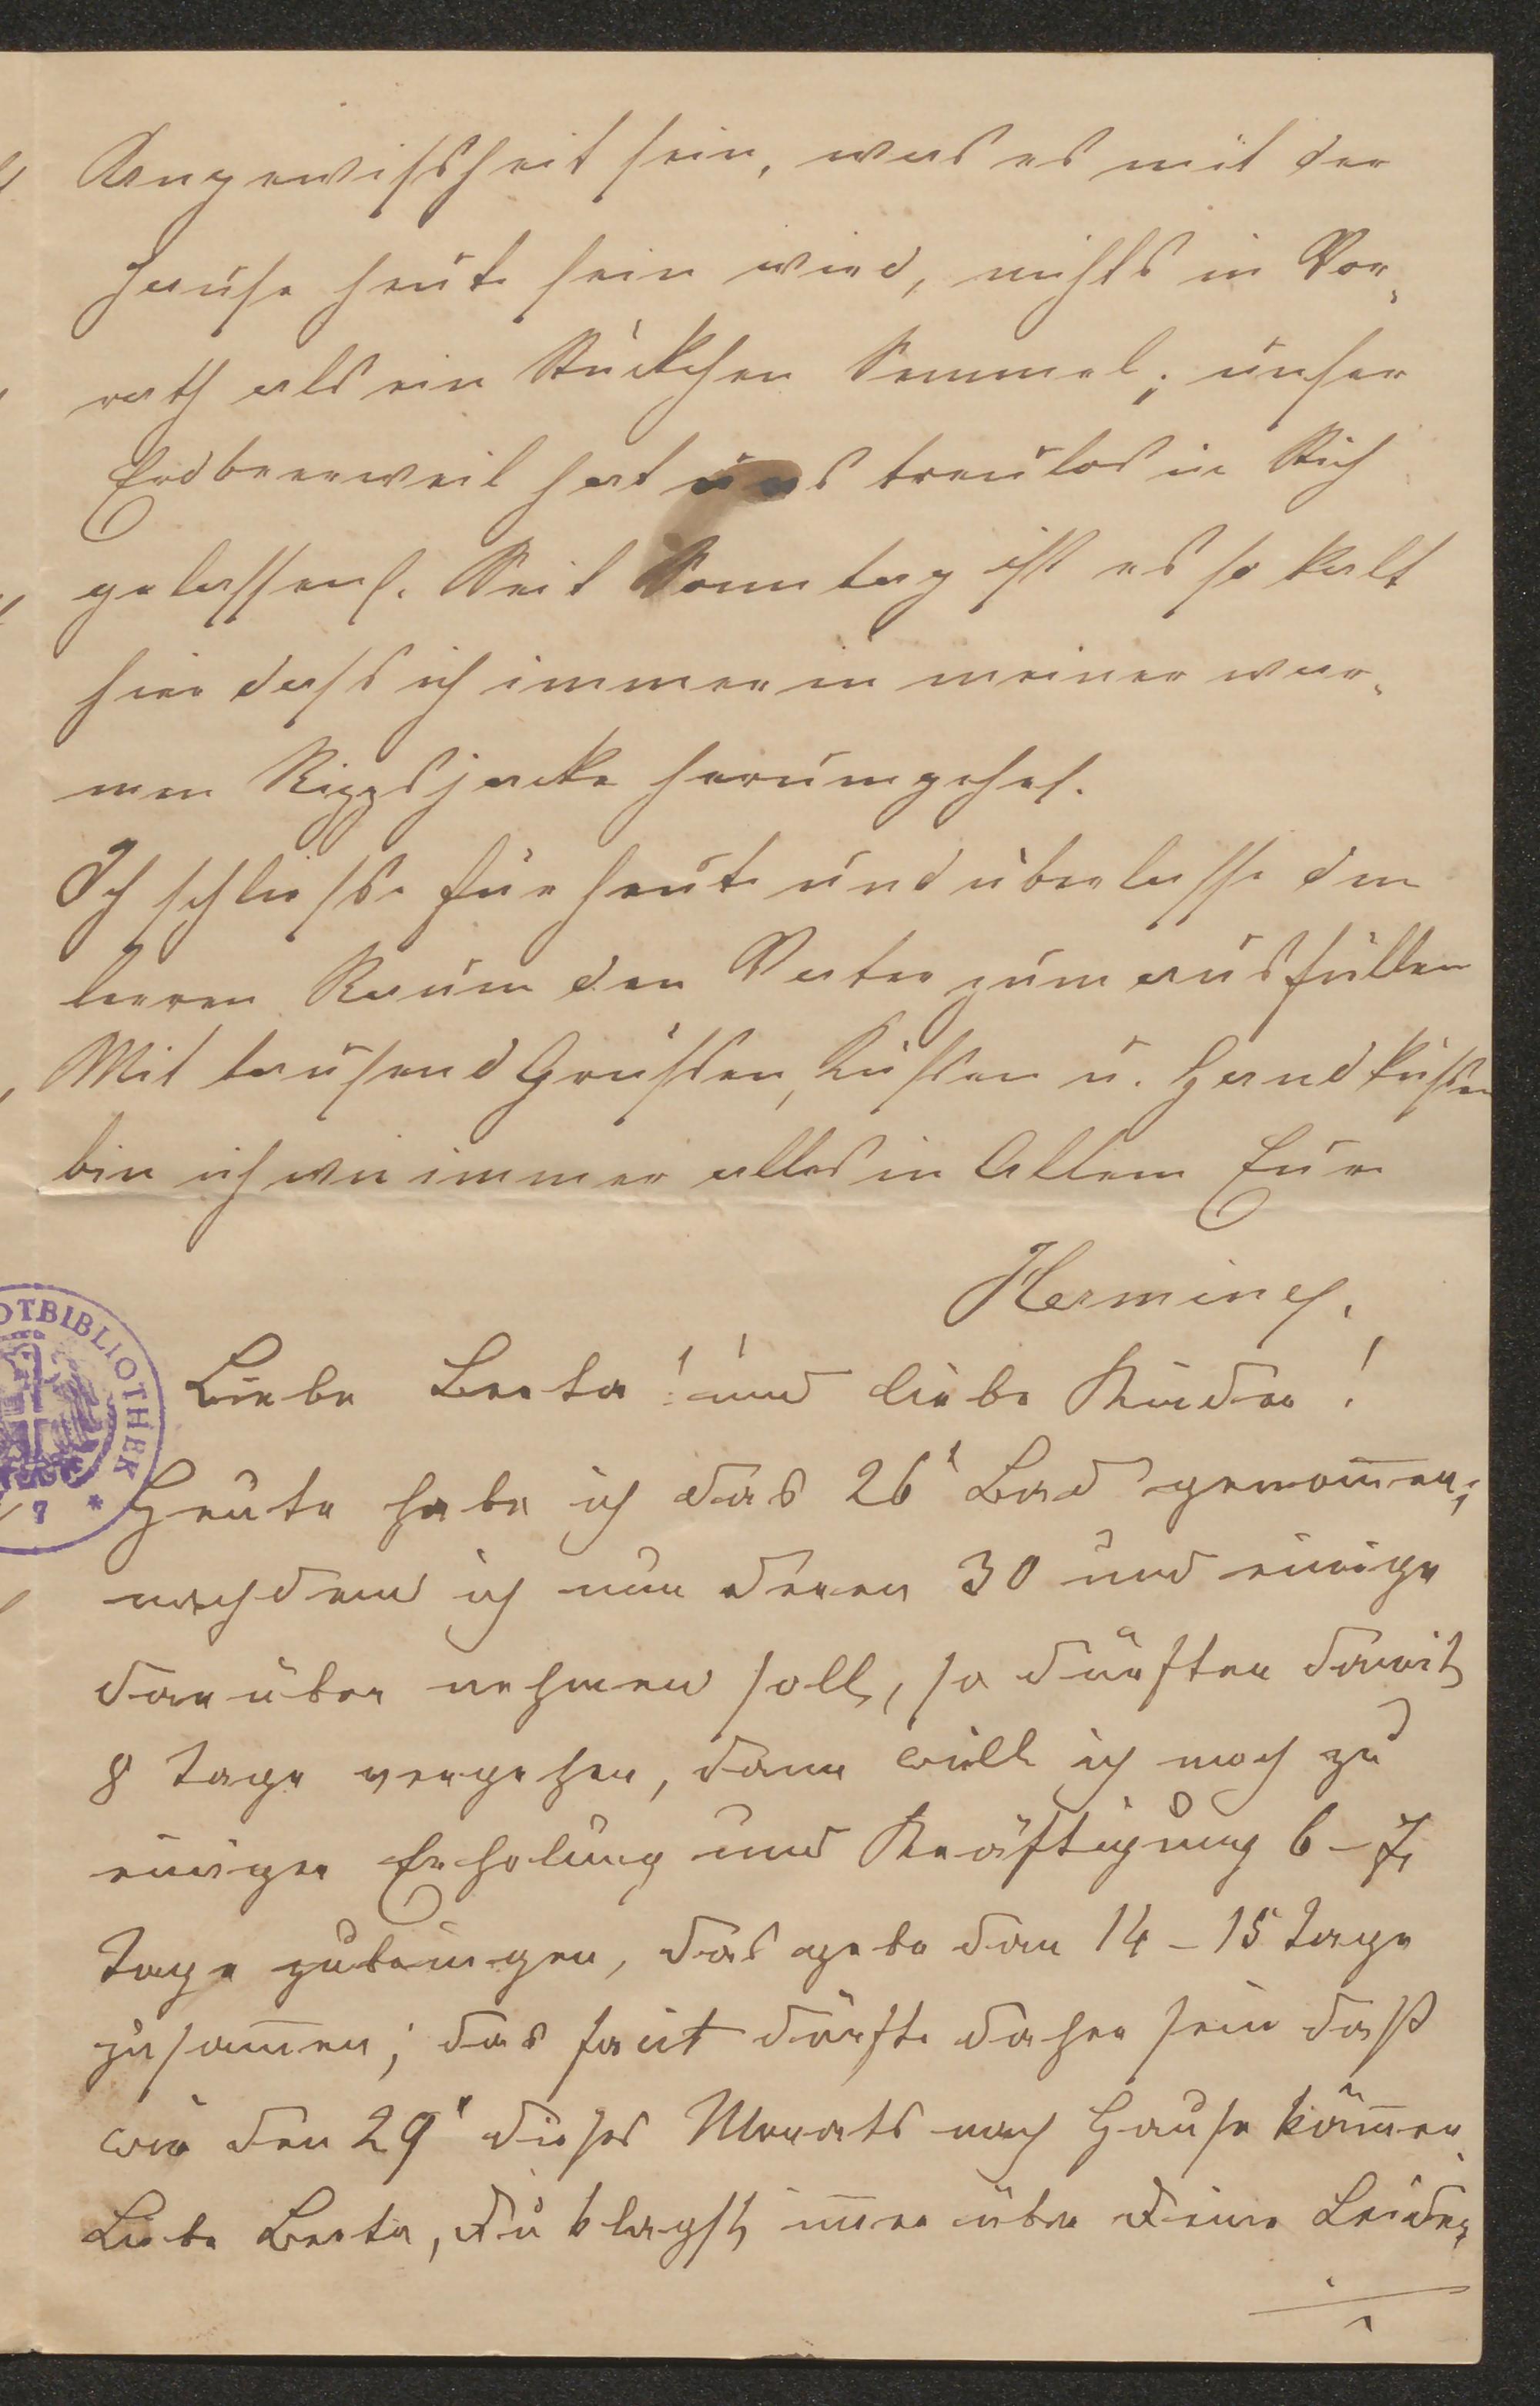 Ungewissheit sein, was es mit der
Jause heute sein wird, nichts in Vor-
rath als ein Stückchen Semmel; unser
Erdbeerweib hat uns treulos in Stich
gelassen. Seit Sonntag ist es so kalt
hier dass ich immer in meiner war-
men Rippsjacke herumgehe.
Ich schliesse für heute und überlasse den
leeren Raum den Vater zum ausfüllen
Mit tausend Grüssen, Küssen u. Handküssen
bin ich wie immer alles in Allem Eure
Hermine.
Liebe Berta! und liebe Kinder!
Heute habe ich das 26' Bad genom̄en;
nachdem ich nun deren 30 und einige
darüber nehmen soll, so dürften damit
8 Tage vergehen, dann will ich noch zu
einiger Erholung und Kräftigung 6-7
Tage zubringen, das gebe dan 14-15 Tage
zusam̄en; das facit dürfte daher sein daß
wir den 29' dieses Monats nach Hause kom̄en.
Liebe Berta, Du klagst im̄er über Deine Leiden,
BIBLIOTHEK